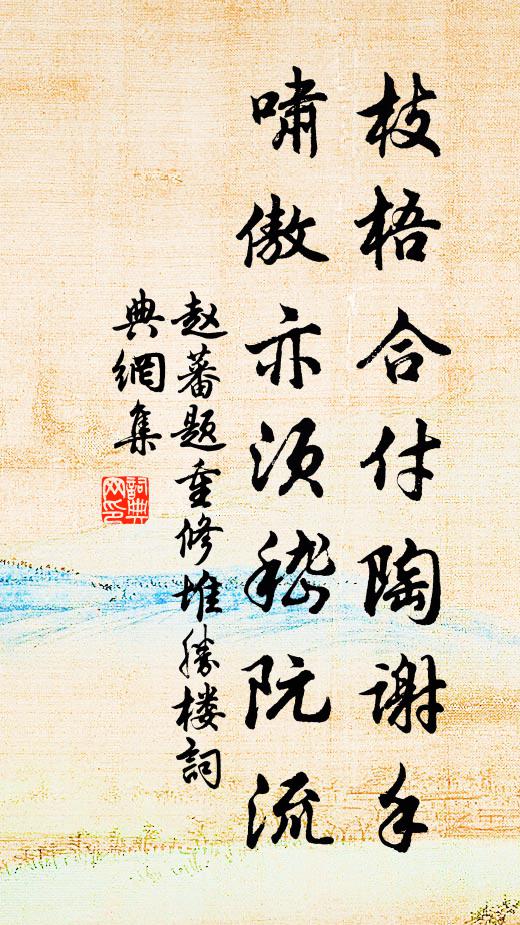 枝梧合付陶谢手
啸傲亦须嵇阮流
赵蕃题重修堆胜楼词
典網集
詞典
网印